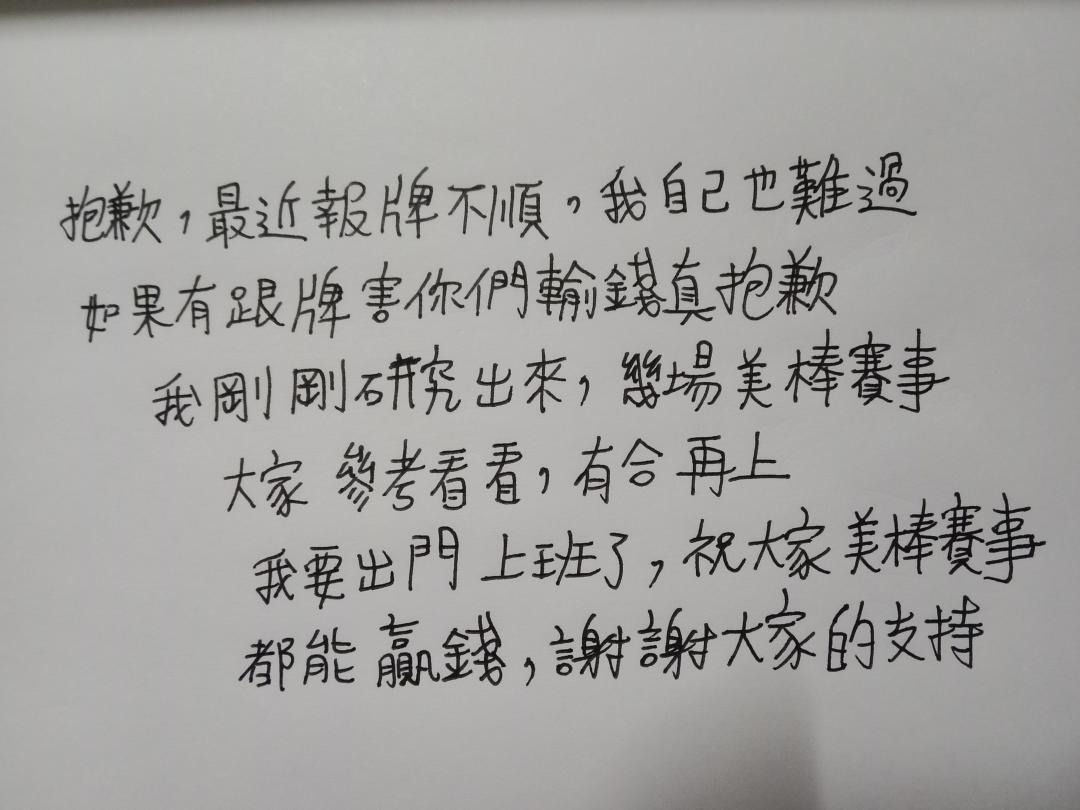 抱歉，最近報牌不順，我自己也難過
如果有跟牌害你們輸錢真抱歉
我剛剛研究出來，幾場美棒賽事
大家參考看看，有合再上
我要出門上班了，祝大家美棒賽事
都能贏錢，謝謝大家的支持